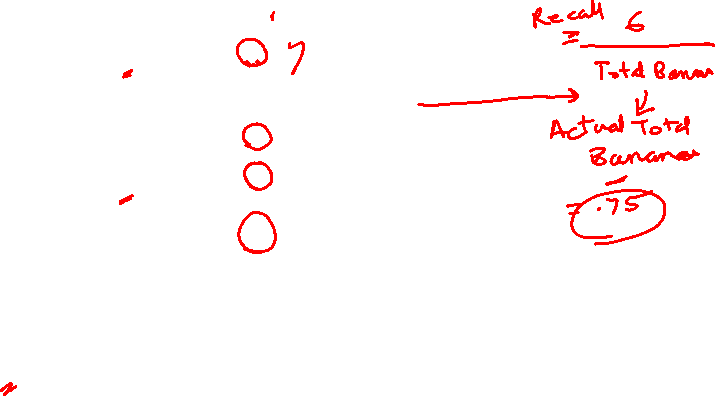 Recall 6
=
Total Banan
Actual Total
Bananas
= .75